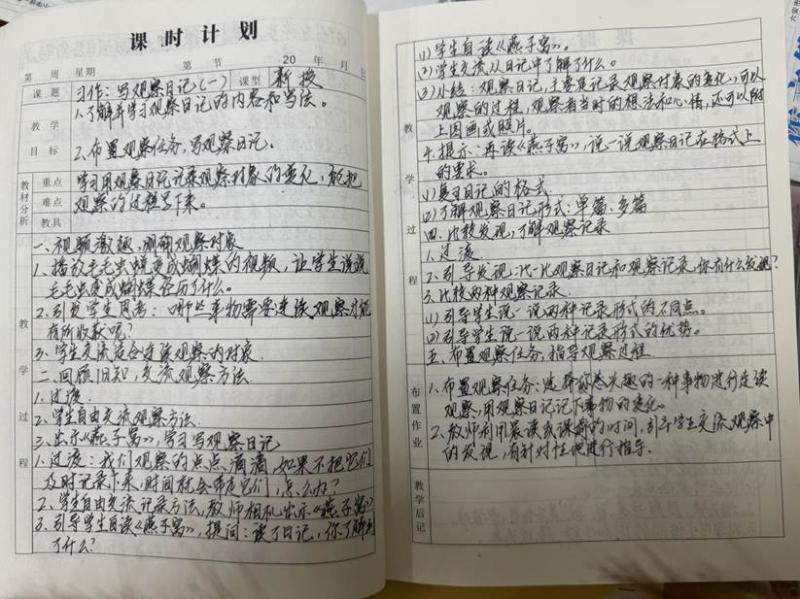 课时计划
第 周 星期 第 节 20 年 月 日
课题 习作：写观察日记(一) 课型 新授
教学目标
1.了解并学习观察日记的内容和写法。
2.布置观察任务，写观察日记。
教材分析 重点 难点 教具
学习用观察日记记录观察对象的变化，能把
观察的过程写下来。
教学过程
一、视频激趣，明确观察对象
1、播放毛毛虫蜕变成蝴蝶的视频，让学生说说
毛毛虫变成蝴蝶经历了什么。
2、引发学生思考：哪些事物需要连续观察才能
有所收获呢？
3、学生交流适合连续观察的对象
二、回顾旧知，交流观察方法
1、过渡
2、学生自由交流观察方法
三、出示《燕子窝》，学习写观察日记
1、过渡：我们观察的点点滴滴，如果不把它们
及时记录下来，时间就会带走它们，怎么办？
2、学生自由交流记录方法，教师相机出示《燕子窝》
3、引导学生自读《燕子窝》，提问：读了日记，你了解到
了什么？
教学过程
(1)学生自读《燕子窝》。
(2)学生交流从日记中了解了什么。
(3)小结：观察日记，主要是记录观察对象的变化，可以
观察的过程，观察者当时的想法和心情，还可以附
上图画或照片。
4、提示：再读《燕子窝》，说一说观察日记在格式上
的要求。
(1)复习日记的格式
(2)了解观察日记形式：单篇、多篇
四、比较发现，了解观察记录
1、过渡
2、引导发现：比一比观察日记和观察记录，你有什么发现？
3、比较两种观察记录
(1)引导学生说一说两种记录形式的不同点。
(2)引导学生说一说两种记录形式的优势。
五、布置观察任务，指导观察过程
布置作业
1、布置观察任务：选择你感兴趣的一种事物进行连续
观察，用观察日记记下事物的变化。
2、教师利用晨读或课前的时间，引导学生交流观察中
的发现，有针对性地进行指导。
教学后记